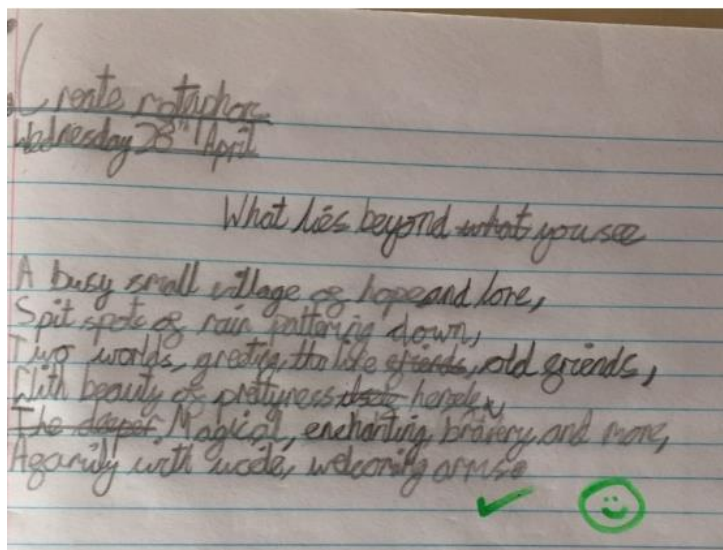 Create metaphor
Wednesday 28th April
What lies beyond what you see
A busy small village of hope and love,
Spit spots of rain pattering down,
Two worlds, greeting, like friends, old friends,
With beauty of prettyness itself herself,
The deeper Magical, enchanting, bravery and more,
A family with wide, welcoming arms.